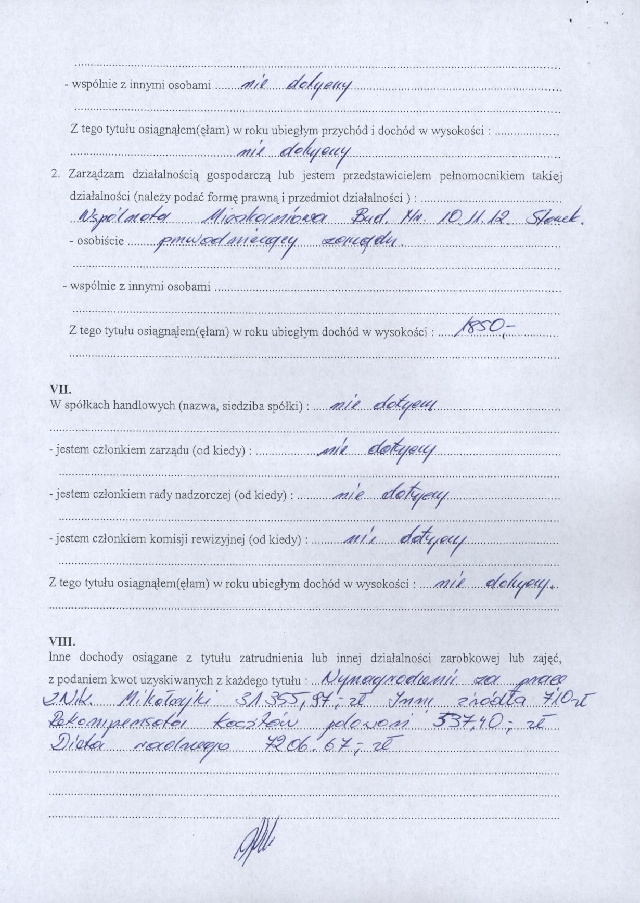 - wspólnie z innymi osobami ... nie dotyczy
Z tego tytułu osiągnąłem(ęłam) w roku ubiegłym przychód i dochód w wysokości : ...
nie dotyczy
2. Zarządzam działalnością gospodarczą lub jestem przedstawicielem pełnomocnikiem takiej
działalności (należy podać formę prawną i przedmiot działalności ) : ...
Wspólnota Mieszkaniowa Bud. Nr. 10.11.12.
- osobiście ... przewodniczący zarządu
- wspólnie z innymi osobami ...
Z tego tytułu osiągnąłem(ęłam) w roku ubiegłym dochód w wysokości : ... 1850,-
VII.
W spółkach handlowych (nazwa, siedziba spółki) : ... nie dotyczy
- jestem członkiem zarządu (od kiedy) : ... nie dotyczy
- jestem członkiem rady nadzorczej (od kiedy) : ... nie dotyczy
- jestem członkiem komisji rewizyjnej (od kiedy) : ... nie dotyczy
Z tego tytułu osiągnąłem(ęłam) w roku ubiegłym dochód w wysokości : ... nie dotyczy.
VIII.
Inne dochody osiągane z tytułu zatrudnienia lub innej działalności zarobkowej lub zajęć,
z podaniem kwot uzyskiwanych z każdego tytułu : ... Wynagrodzenie za pracę
Mikołajki 31355,97,- zł Inne źródła 710 zł
Rekompensata kosztów 537,40,- zł
Dieta radnego 7206.67,- zł